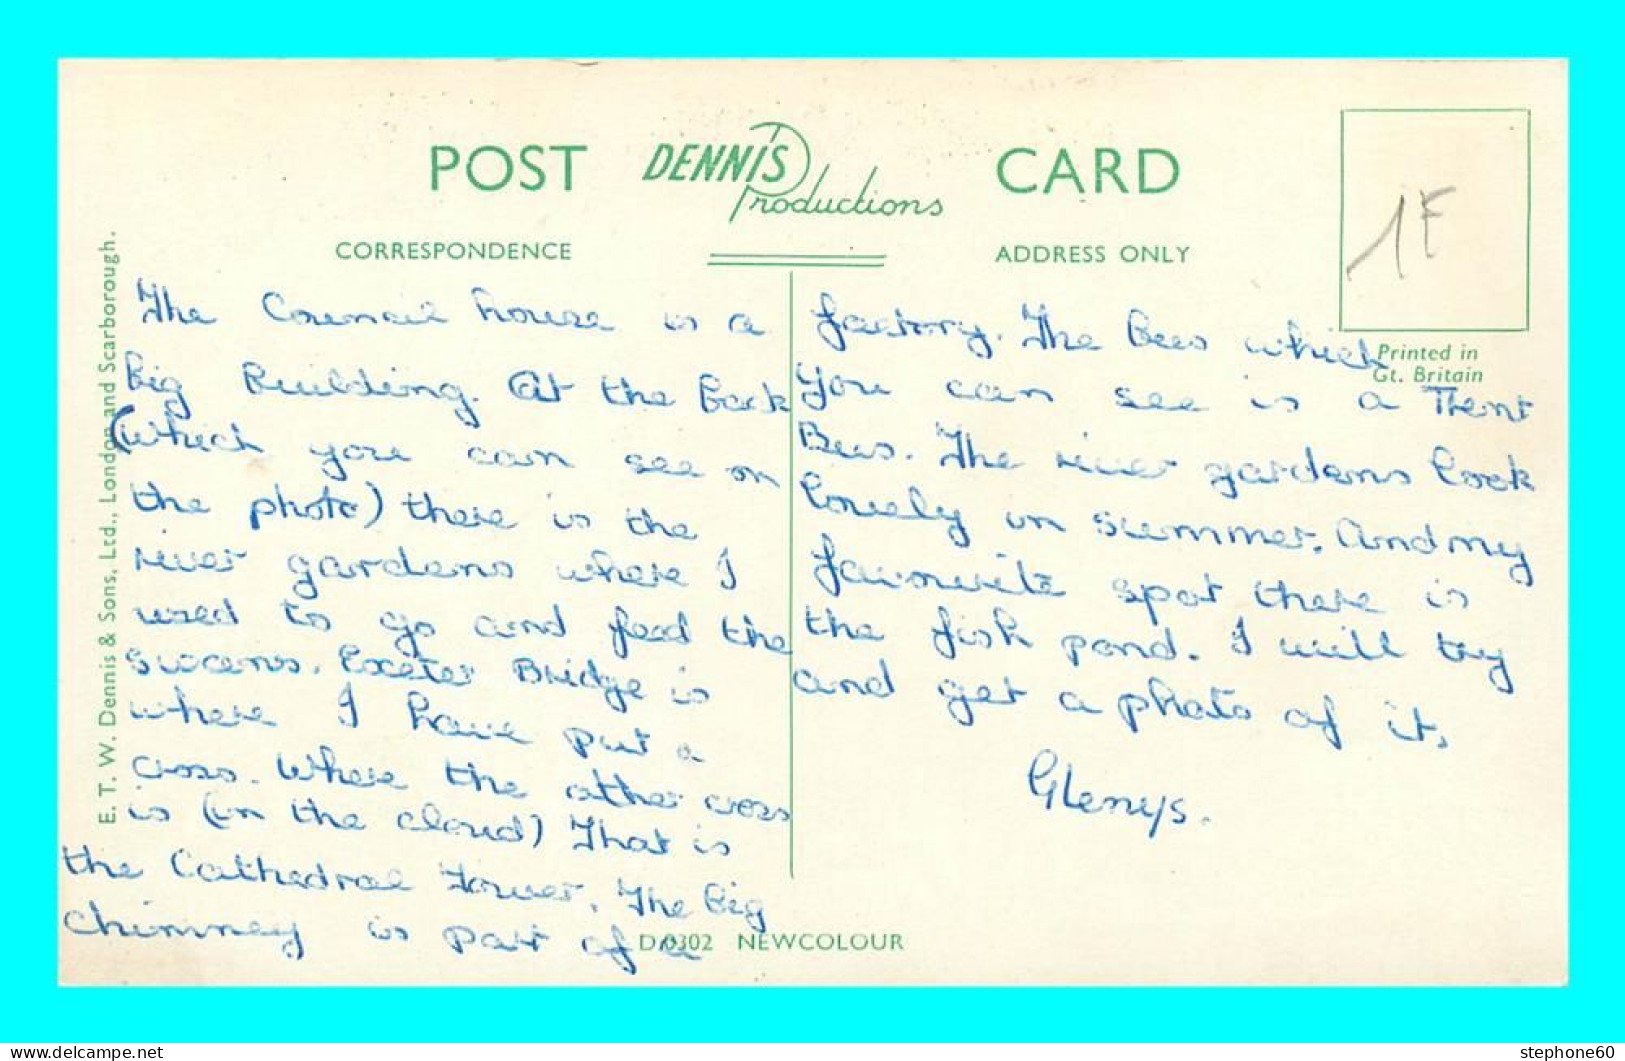 POST DENNIS Productions CARD
CORRESPONDENCE
ADDRESS ONLY
1F
Printed in
Gt. Britain
E. T. W. Dennis & Sons, Ltd., London and Scarborough.
The Council house is a
big Building. At the back
(which you can see on
the photo) there is the
river gardens where I
used to go and feed the
swans. Exeter Bridge is
where I have put a
cross. Where the other cross
is (in the cloud) That is
the Cathedral tower. The big
chimney is part of a
factory. The bus which
you can see is a Trent
Bus. The river gardens look
lovely in summer. And my
favourite spot there is
the fish pond. I will try
and get a photo of it.
Glenys.
D.0302 NEWCOLOUR
stephone60
delcampe.net